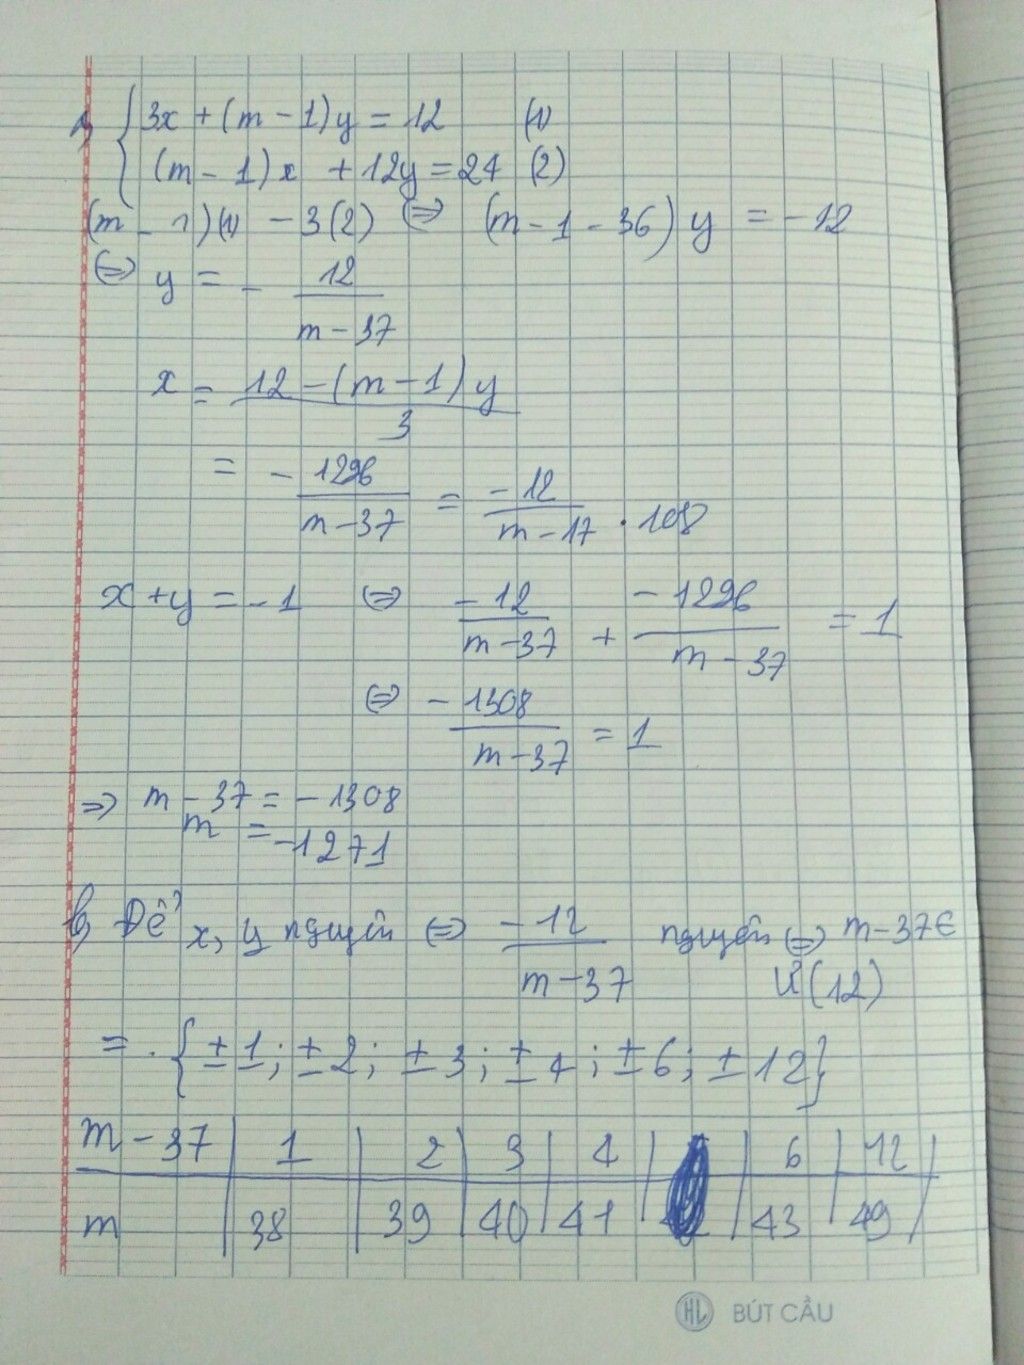 a) { 3x + (m - 1)y = 12 (1)
(m - 1)x + 12y = 24 (2)
(m - 1)(1) - 3(2) ⇔ (m - 1 - 36) y = -12
⇔ y = - 12/(m - 37)
x = (12 - (m - 1)y)/3
= - 1296/(m - 37) = -12/(m - 17) . 108
x + y = -1 ⇔ -12/(m - 37) + -1296/(m - 37) = 1
⇔ - 1308/(m - 37) = 1
⇒ m - 37 = -1308
m = -1271
b) Để x, y nguyên ⇔ -12/(m - 37) nguyên ⇔ m - 37 ∈ Ư(12)
= . {±1; ±2; ±3; ±4; ±6; ±12}
m - 37 | 1 | 2 | 3 | 4 | | 6 | 12 |
m | 38 | 39 | 40 | 41 | | 43 | 49 |
HL BÚT CẦU